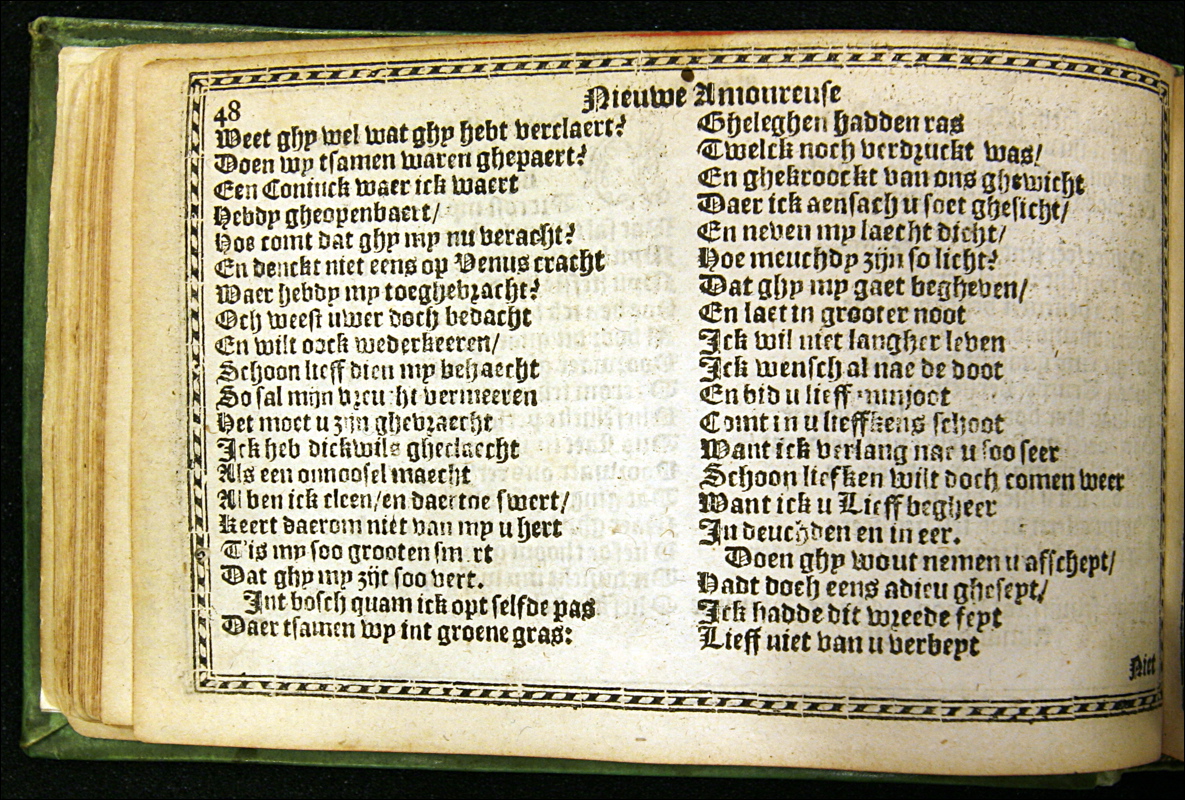 48
Nieuwe Amoureuse
Weet ghy wel wat ghy hebt verclaert?
Doen wy tsamen waren ghepaert?
Een Coninck waer ick waert
Hebdy gheopenbaert/
Hoe comt dat ghy my nu veracht?
En denckt niet eens op Venus cracht
Waer hebdy my toeghebracht?
Och weest uwer doch bedacht
En wilt oock wederkeeren/
Schoon lieff dien my behaecht
So sal mijn vreucht vermeeren
Het moet u zijn ghebraecht
Ick heb dickwils gheclaecht
Als een onnoosel maecht
Al ben ick cleen/en daertoe swert/
Keert daerom niet van my u hert
Tis my soo grooten smert
Dat ghy my zijt soo vert.
Int bosch quam ick opt selfde pas
Daer tsamen wy int groene gras:
Gheleghen hadden ras
Twelck noch verdruckt was/
En ghekroockt van ons ghewicht
Daer ick aensach u soet ghesicht/
En neven my laecht dicht/
Hoe meuchdy zijn so licht?
Dat ghy my gaet begheven/
En laet in grooter noot
Ick wil niet langher leven
Ick wensch al nae de doot
En bid u lieff minjoot
Comt in u lieffkens schoot
Want ick verlang nae u soo seer
Schoon liefken wilt doch comen weer
Want ick u Lieff begheer
In deuchden en in eer.
Doen ghy wout nemen u afscheyt/
Hadt doch eens adieu gheseyt/
Ick hadde dit wreede feyt
Lieff niet van u verbeyt
Niet